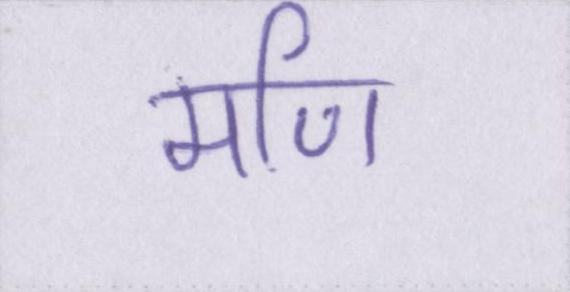 मणि